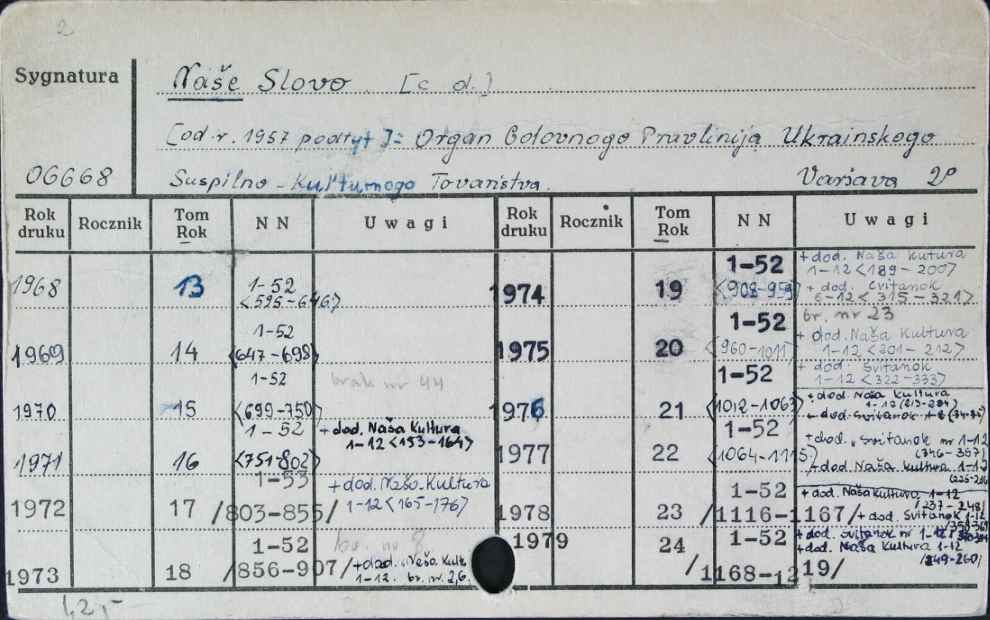 2
Sygnatura
Naše Slovo [c d.]
[od r. 1957 podtyt]: Organ Golovnogo Pravlinija Ukrainskogo
06668
Suspilno-Kul'turnogo Tovaristva.
Varšava 2°
Rok druku Rocznik Tom Rok NN Uwagi Rok druku Rocznik Tom Rok NN Uwagi
1968 13 1-52 <595-646>
1969 14 1-52 <647-698>
1970 15 1-52 <699-750> brak nr 44
1971 16 1-52 <751-802> + dod. Naša Kultura 1-12 <153-164>
1972 17 1-53 /803-855/ + dod. Naša Kultura 1-12 <165-176>
1973 18 1-52 /856-907/ br. nr 8 + dod. Naša Kult. 1-12. br. nr. 2,6.
1974 19 1-52 <908-959> + dod. Naša Kutura 1-12 <189-200> + dod. Svitanok <315-321>
br. nr 23
1975 20 1-52 <960-1011> + dod. Naša Kultura 1-12 <201-212> + dod. Svitanok 1-12 <322-333>
1976 21 1-52 <1012-1063> + dod. Naša Kultura 1-12 + dod. Svitanok
1977 22 1-52 <1064-1115> + dod. Svitanok nr 1-12 + dod. Naša Kultura 1-12
1978 23 1-52 /1116-1167/ + dod. Naša Kultura 1-12 /237-248/ + dod. Svitanok 1-12
1979 24 1-52 /1168-1219/ + dod. Svitanok nr 1-12 + dod. Naša Kultura 1-12 /249-260/
42,-